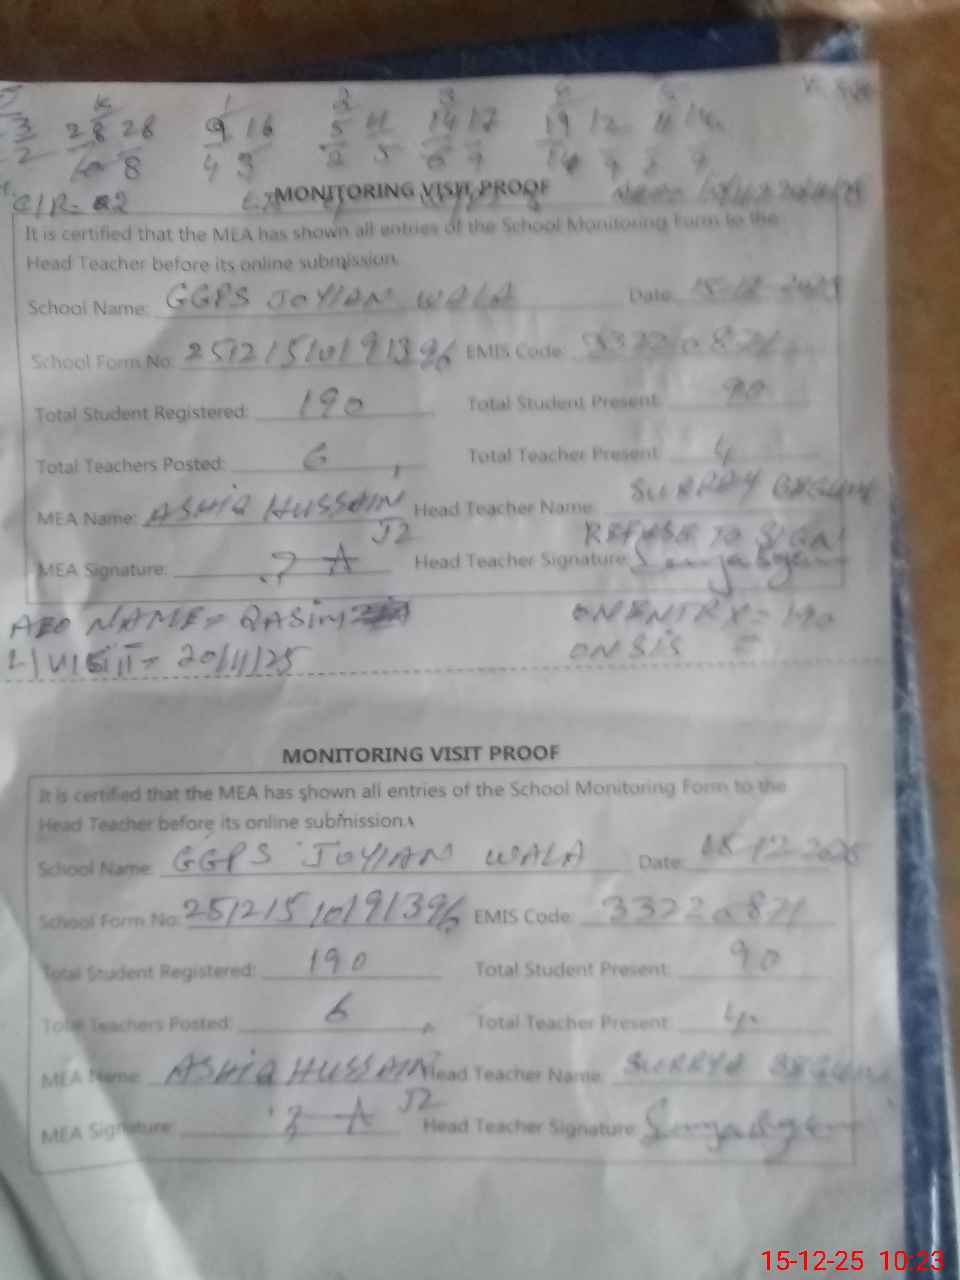 3 28 28 9 16 5 11 14 17 19 12 11 14
2 10 8 4 3 2 5 6 9 14 9 2 9
C/R-
MONITORING VISIT PROOF
It is certified that the MEA has shown all entries of the School Monitoring Form to the
Head Teacher before its online submission.
School Name: GGPS JOYIAN WALA Date: 15-12-2025
School Form No: 25121510191396 EMIS Code: 33220821
Total Student Registered: 190 Total Student Present: 90
Total Teachers Posted: 6 Total Teacher Present: 4
MEA Name: ASHIQ HUSSAIN Head Teacher Name: SURRAY BEGUM
52 REFUSE TO SIGN
MEA Signature: Head Teacher Signature:
AEO NAME= QASIM ON ENTRY= 190
L/VISIT= 20/11/25 ON SIS =
MONITORING VISIT PROOF
It is certified that the MEA has shown all entries of the School Monitoring Form to the
Head Teacher before its online submission.
School Name: GGPS JOYIAN WALA Date: 15-12-2025
School Form No: 25121510191396 EMIS Code: 33220821
Total Student Registered: 190 Total Student Present: 90
Total Teachers Posted: 6 Total Teacher Present: 4
MEA Name: ASHIQ HUSSAIN Head Teacher Name: SURRYA BEGUM
52
MEA Signature: Head Teacher Signature:
15-12-25 10:23